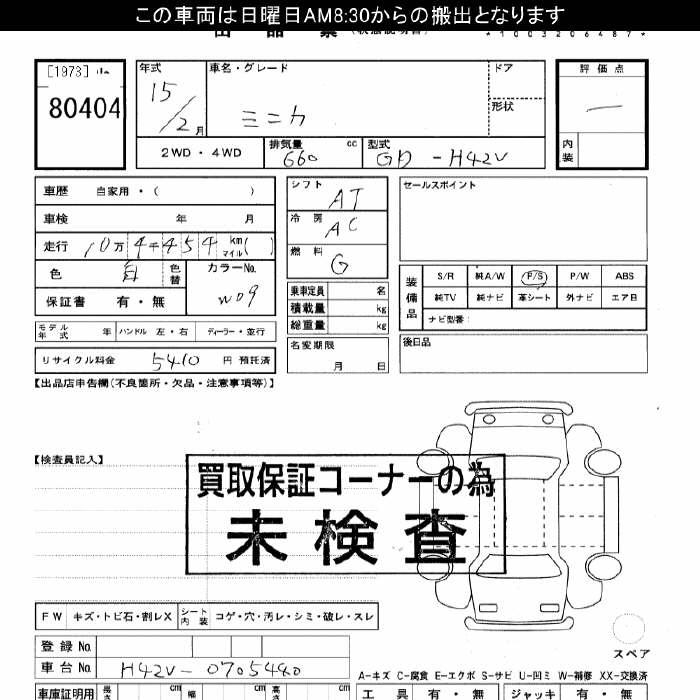 この車両は日曜日AM8:30からの搬出となります
*1003206487*
[1973]
80404
年式 車名・グレード ドア 評価点
15/2月 ミニカ 形状 —
2WD・4WD 排気量 660 cc 型式 GD-H42V 内装
車歴 自家用・( ) シフト AT セールスポイント
車検 年 月 冷房 AC
走行 10万4千454 km マイル( ) 燃料 G
色 白 色替 カラーNo. W09
保証書 有・無
乗車定員 名
積載量 kg
総重量 kg
装備品 S/R 純A/W P/S P/W ABS
純TV 純ナビ 革シート 外ナビ エア日
ナビ型番:
モデル年式 年 ハンドル 左・右 ディーラー・並行 名変期限 月 日 後日品
リサイクル料金 5410 円 預託済
【出品店申告欄(不良箇所・欠品・注意事項等)】
【検査員記入】
買取保証コーナーの為
未検査
FW キズ・トビ石・割レX シート内装 コゲ・穴・汚レ・シミ・破レ・スレ
登録No.
スペア
車台No. H42V-0705440
A−キズ C−腐食 E−エクボ S−サビ U−凹ミ W−補修 XX−交換済
車庫証明用 長さ cm 幅 cm 高さ cm 工具 有・無 ジャッキ 有・無